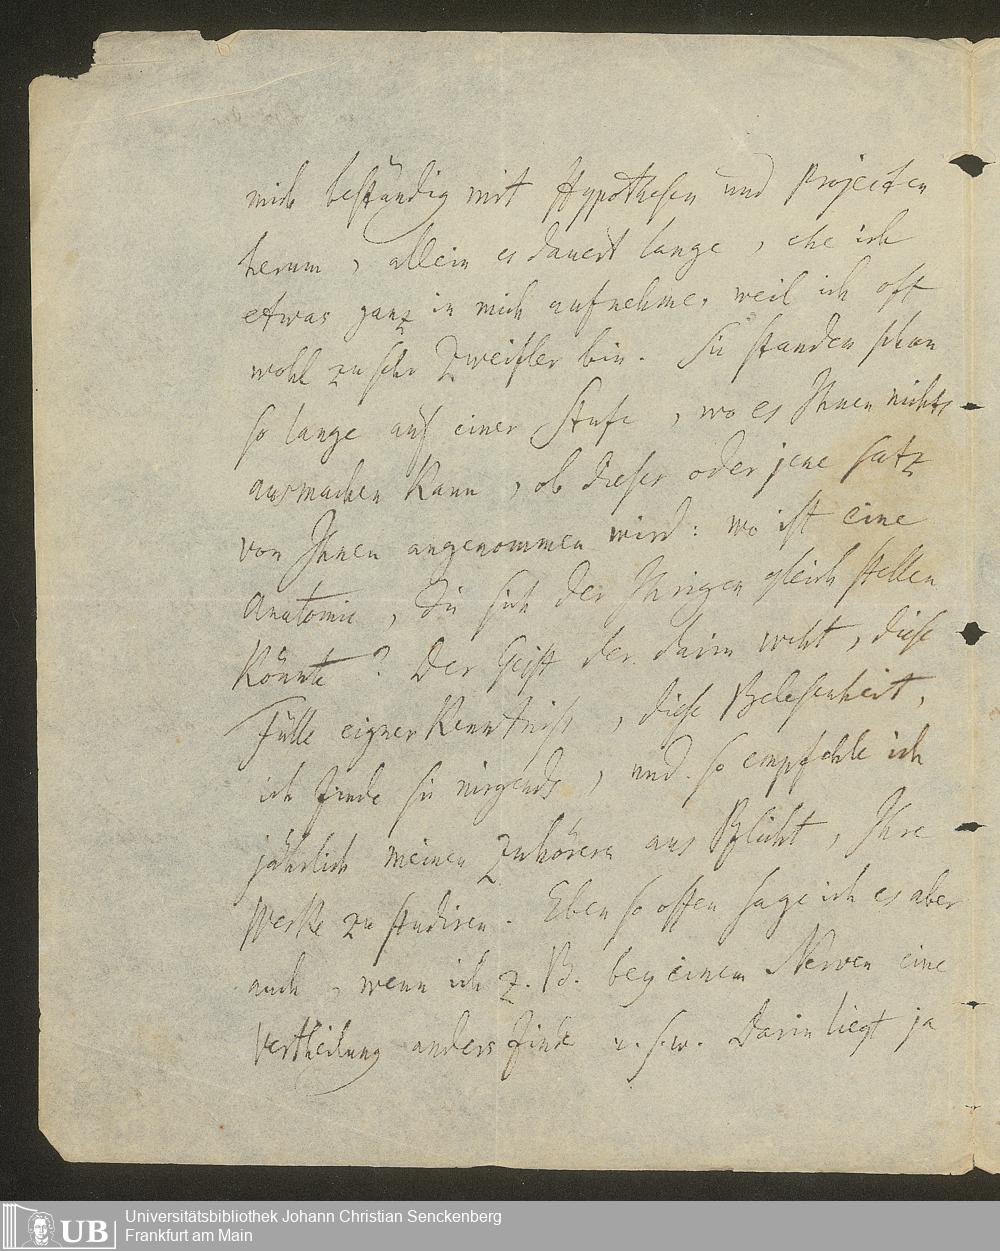 mich beständig mit Hypothesen und Projecten
herum, allein es dauert lange, ehe ich
etwas ganz in mich aufnehme, weil ich oft
wohl zu sehr Zweifler bin. Sie standen schon
so lange auf einer Stufe, wo es Ihnen nichts
ausmachen kann, ob dieser oder jene Satz
von Ihnen angenommen wird: wo ist eine
Anatomie, die sich der Ihrigen gleich stellen
könnte? Der Geist der darin weht, diese
Fülle eigner Kenntniß, diese Belesenheit,
ich finde sie nirgends, und so empfehle ich
jährlich meinen Zuhörern aus Pflicht, Ihre
Werke zu studiren. Eben so offen sage ich es aber
auch, wenn ich z. B. bey einem Nerven eine
Vertheilung anders finde u. s. w. Darin liegt ja
UB
Universitätsbibliothek Johann Christian Senckenberg
Frankfurt am Main